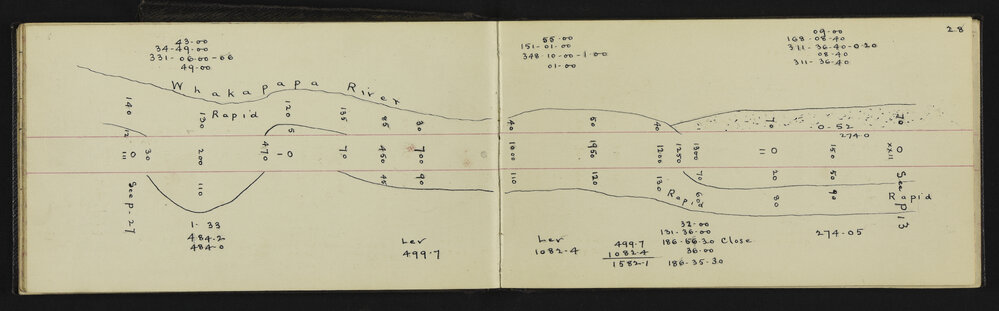 28
43-00
34-49-00
331-06-00-06
49-00
55-00
151-01-00
348-10-00-1-00
01-00
09-00
168-08-40
311-36-40-0-20
08-40
311-36-40
Whakapapa River
Rapid
140
130
120
135
85
80
12
5
30
200
470
0-1
70
450
700
110
45
90
See p. 27
1-33
484.2
484-0
Ler
499.7
40
50
40
70
70
0-52
274.0
1000
1950
1200
1250
1300
150
110
120
130
70
60
20
80
50
90
Rapid
Rapid
See p 13
Ler
1082.4
499.7
1082.4
1582.1
32-00
131-36-00
186-56-30 Close
36-00
186-35-30
274-05